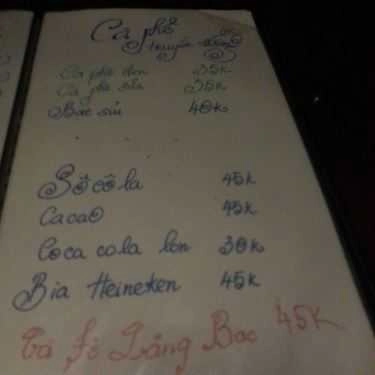 Cà phê
truyền thống
Cà phê đen 35k
Cà phê sữa 35k
Bạc sỉu 40k
Sô cô la 45k
Cacao 45k
Coca cola lon 30k
Bia Heineken 45k
Lắng Bạc 45K